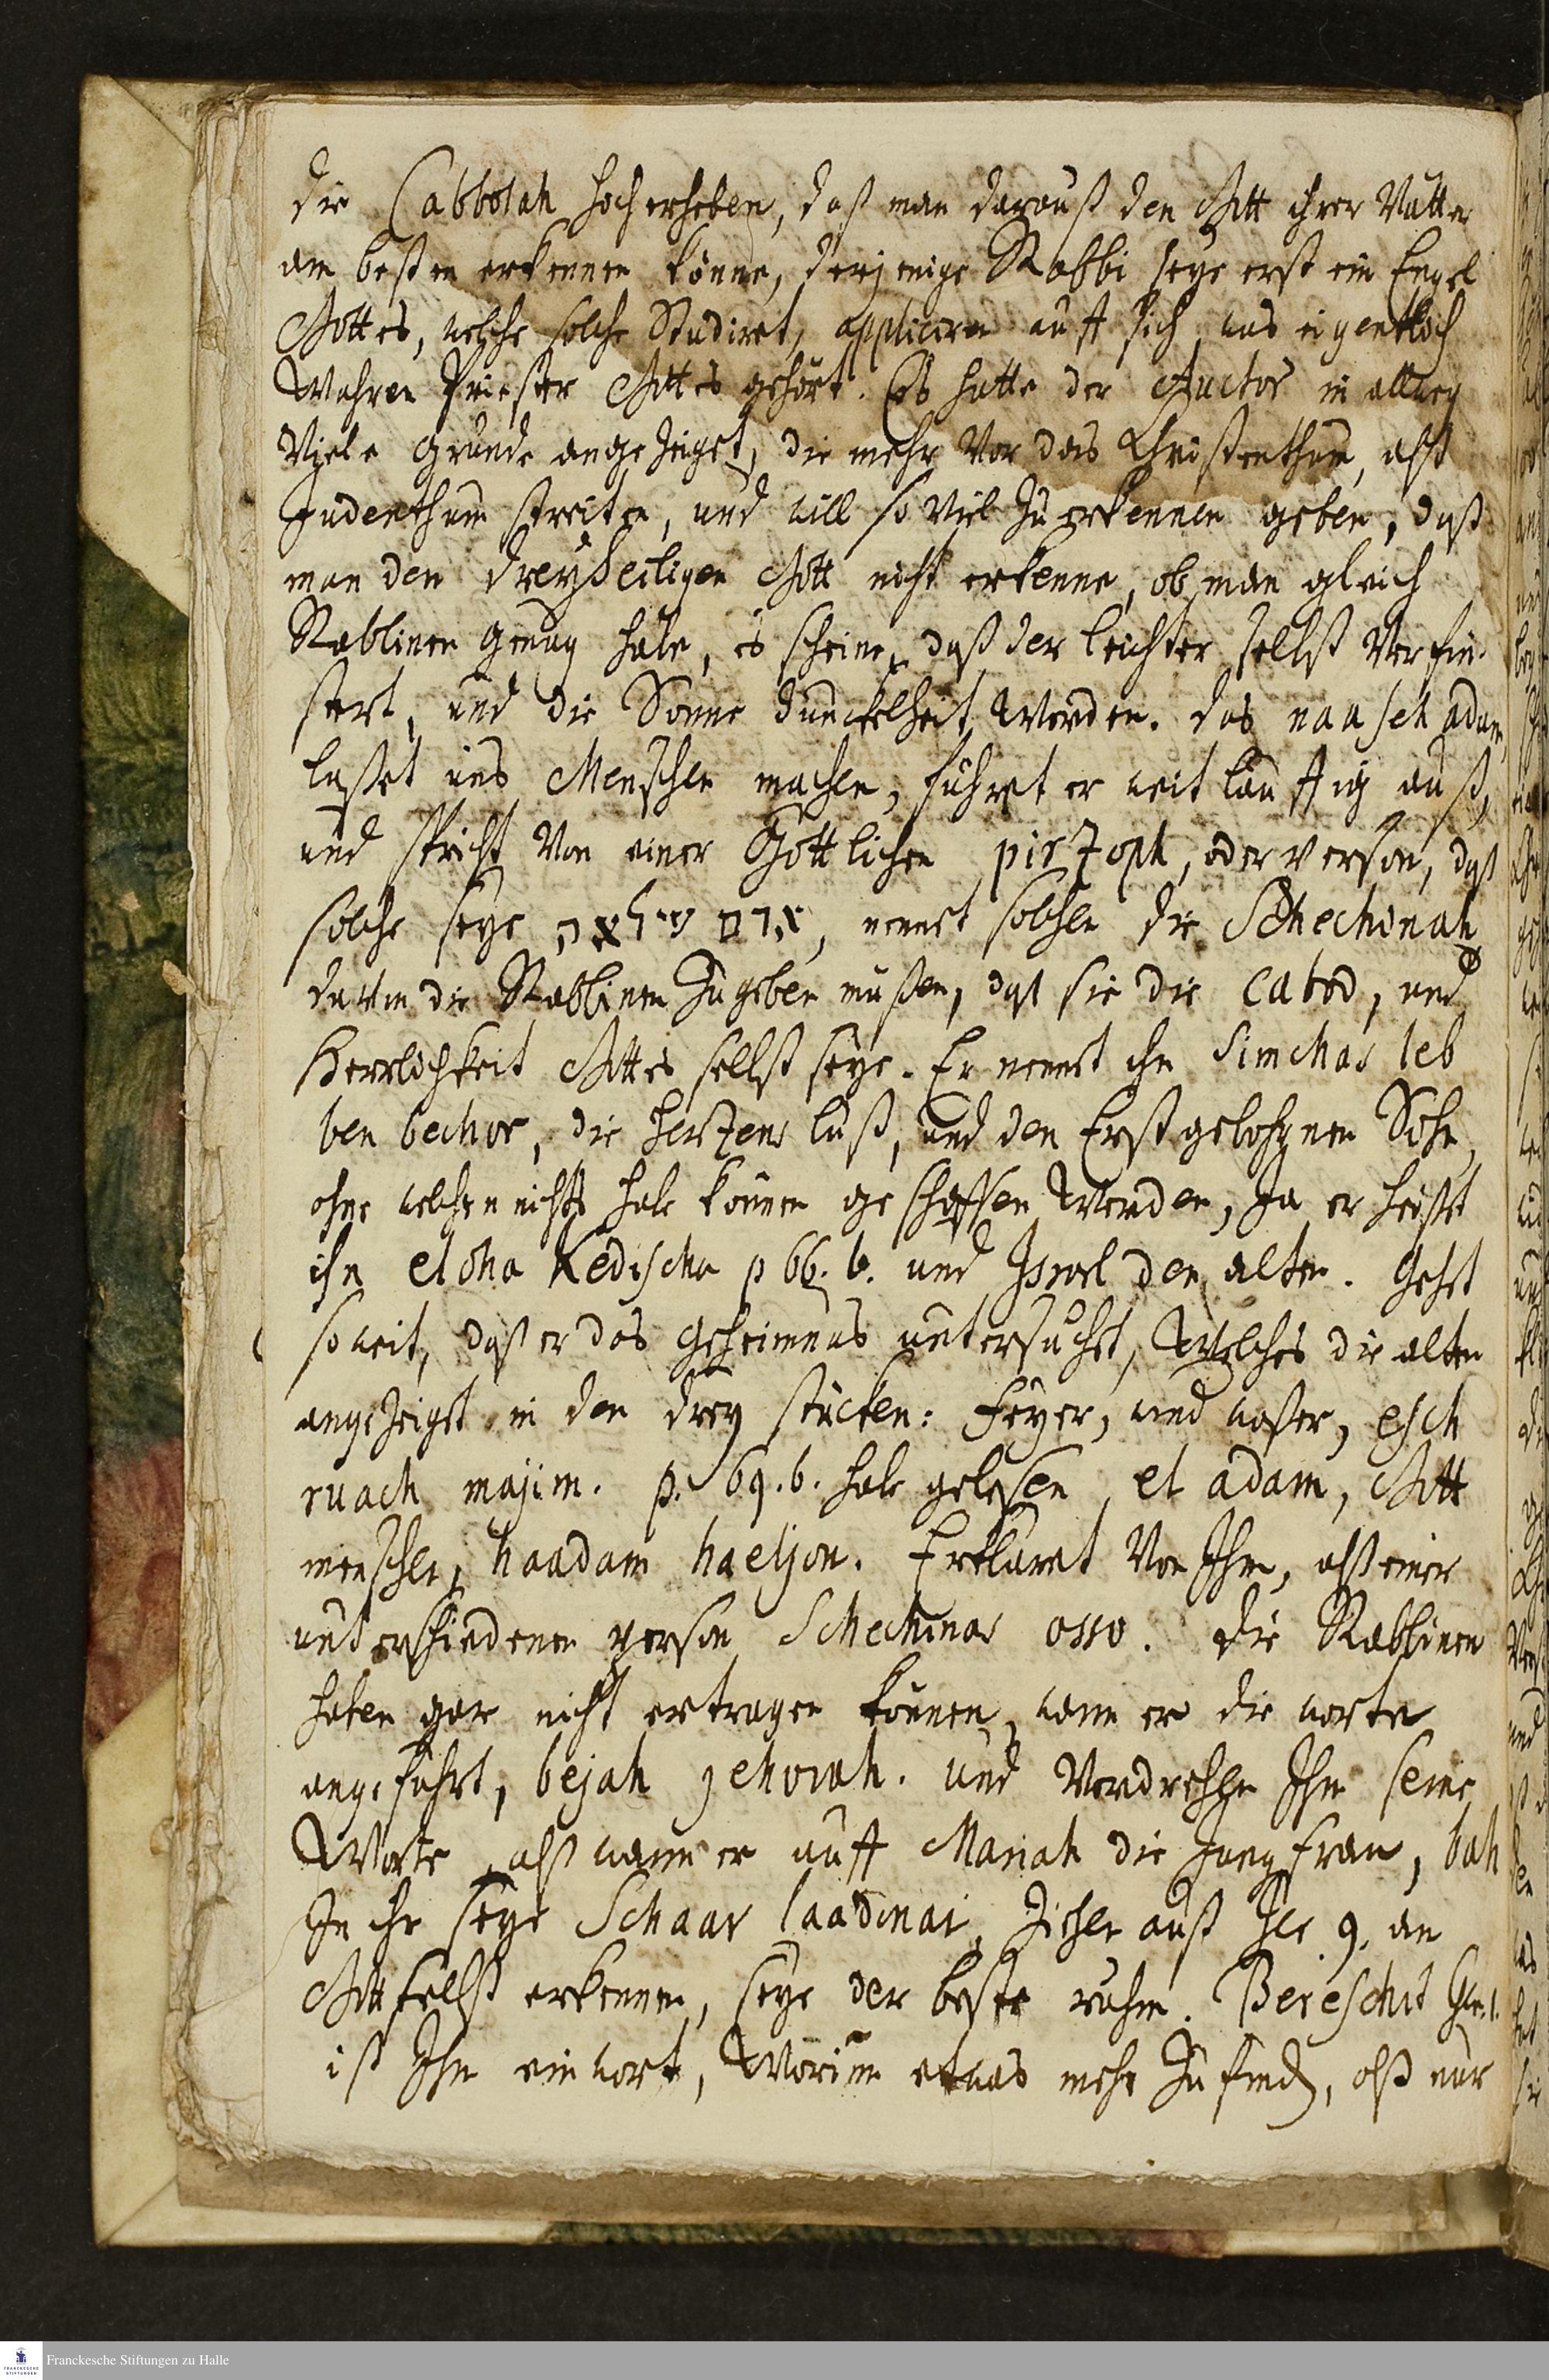 die Cabbolah hoch erheben, daß man darauß den Gott ihrer Vätter
am besten erkennen könne, derjenige Rabbi seye erst ein Engel
Gottes, welcher solche Studiret, appliciren auff sich, was eigentlich
Wahren Priester Gottes gehört. Es hatte der Auctor in allweg
Viele gründe angezeiget, die mehr Vor das Christenthum, alß
Judenthum streiten, und will so viel zu erkennen geben, daß
man den dreyheiligen Gott nicht erkenne, ob man gleich
Rabbinen genug habe, es scheine, daß der leichter selbst Verfin-
stert, und die Sonne dunckelheit Werden. das naaseh adam,
laßet uns Menschen machen, führet er weitläuffig auß,
und spricht Von einer Göttlichen pirzoph, oder person, daß
solche seye, nennet solchen die Schechinah
davon die Rabbinen zugeben müßen, daß sie die cabod, und
Herrlichkeit Gottes selbst seye. Er nennet ihn Simchas leb
ben bechor, die Herzens lust, und den Erstgebohrnen Sohn,
ohne welchen nichts habe können geschaffen Werden, Ja er heißet
ihn eloha Kedischa p 66. b. und Israel den alten. Gehet
so weit, daß er das geheimnus untersuchet, Welches die alten
angezeiget in den drey stücken: Feyer, wind waßer, esch
ruach majim. p. 69. b. habe gelesen, el adam, Gott
mensche, haadam haeljon. Erkläret Von Ihm, alß einer
unterschiedenen person Schechinas osso. die Rabbinen
haben gar nicht ertragen können, wann er die worte
angeführt, bejah jehovah. und Verdrehen Ihm seine
Worte, alß wann er auff Mariah die Jungfrau, bah
In ihr seye Schaar laadonai, ziehen auß Jer 9. an
Gott selbst erkennen, seye der beste ruhm. Bereschit Gen. 1.
ist Ihm ein wort, Worinn etwas mehr zu finden, alß nur
Franckesche Stiftungen zu Halle